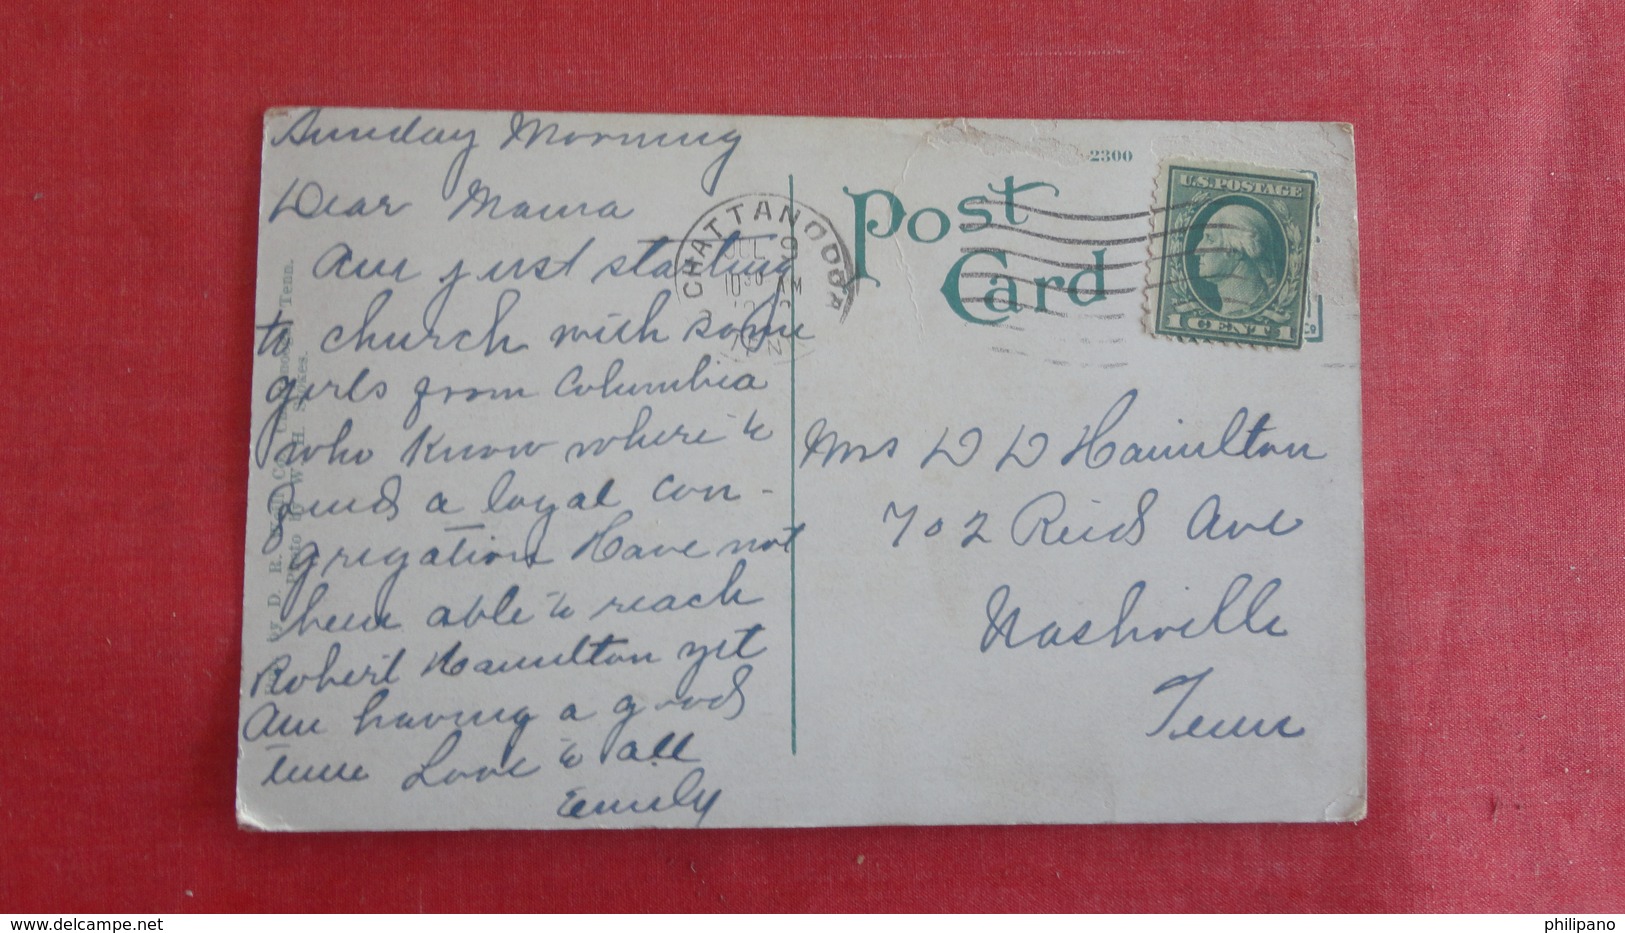 Sunday Morning
Dear Mama
Am just starting
to church with some
girls from Columbia
who know where to
find a loyal con-
gregation Have not
been able to reach
Robert Hamilton yet
Am having a good
time Love to all
Emily
2300
Post
Card
U.S. POSTAGE
1 CENT 1
CHATTANOOGA
JUL
10 30 AM
TENN
Mrs D D Hamilton
702 Reids Ave
Nashville
Tenn
by D. R.
Photo by W. H. Stokes.
Tenn.
philipano